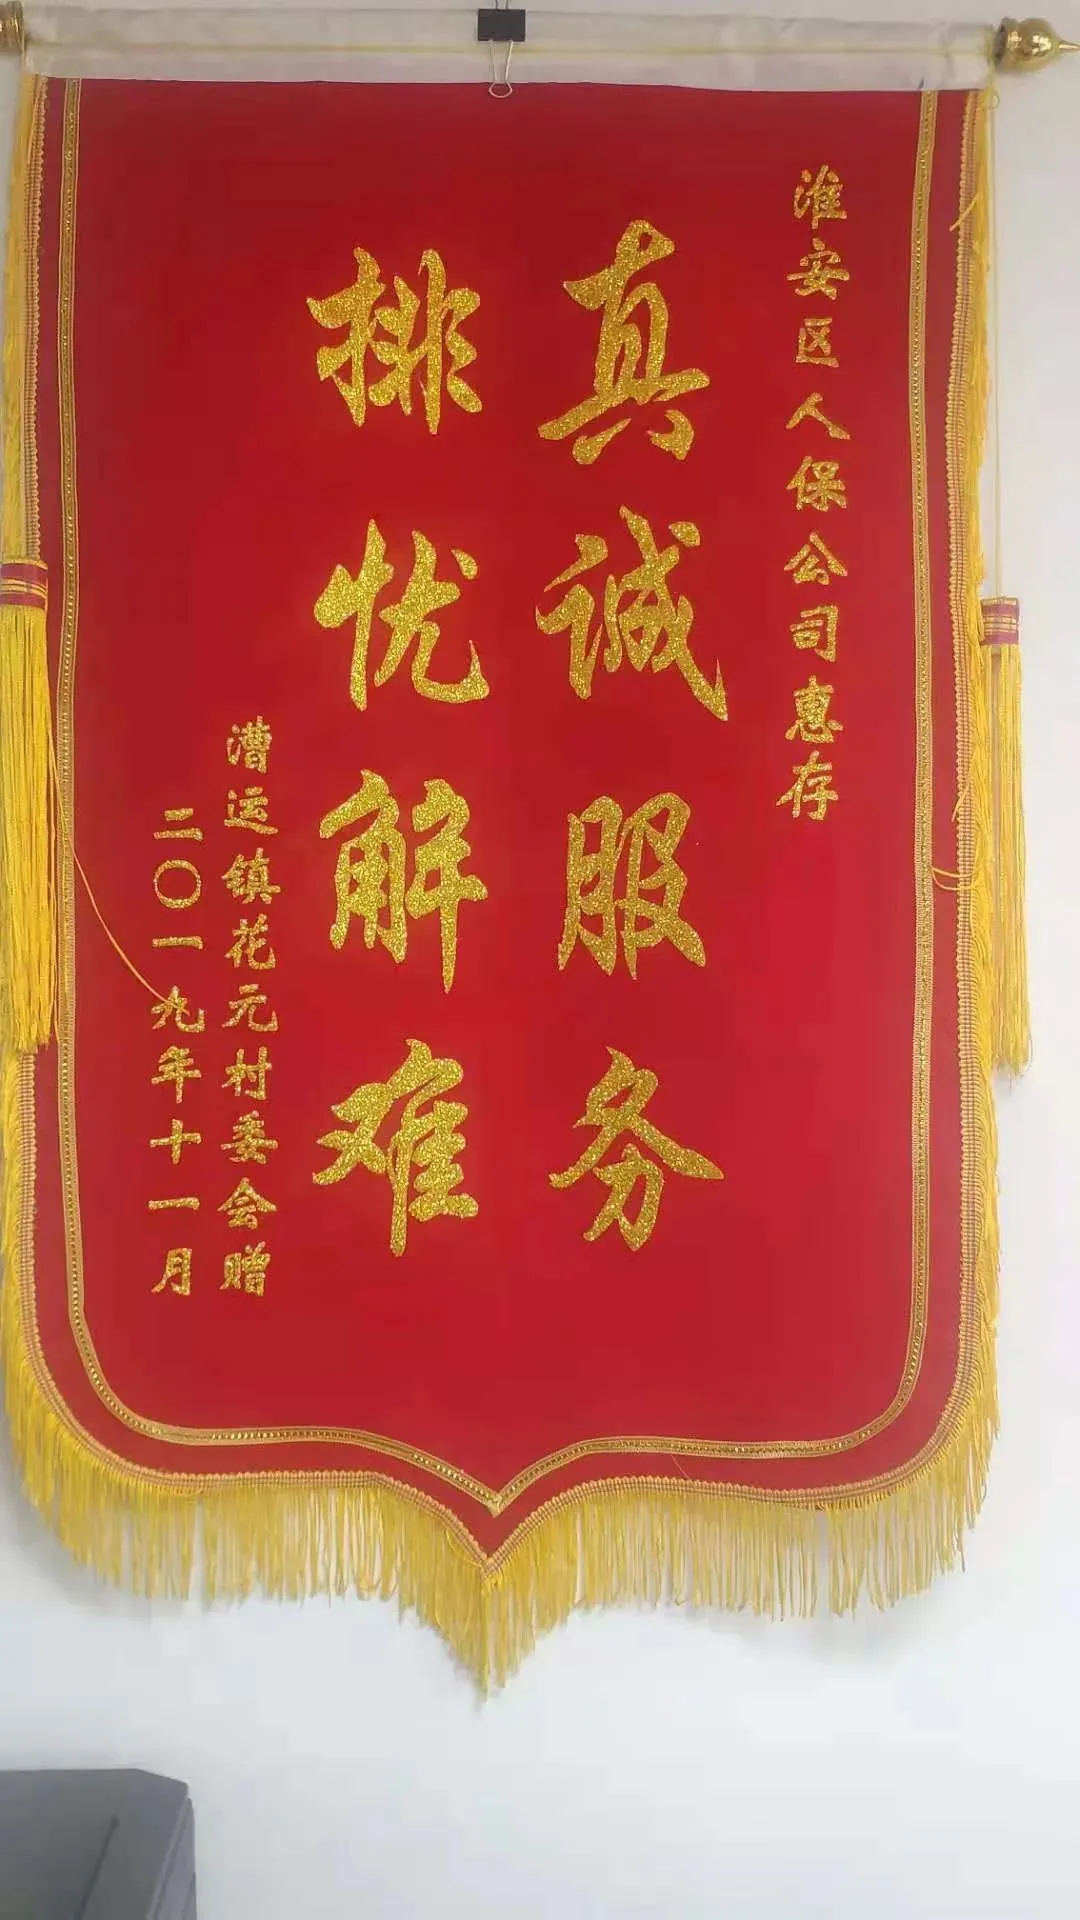 淮安区人保公司惠存
真诚服务
排忧解难
漕运镇花元村委会赠
二〇一九年十一月